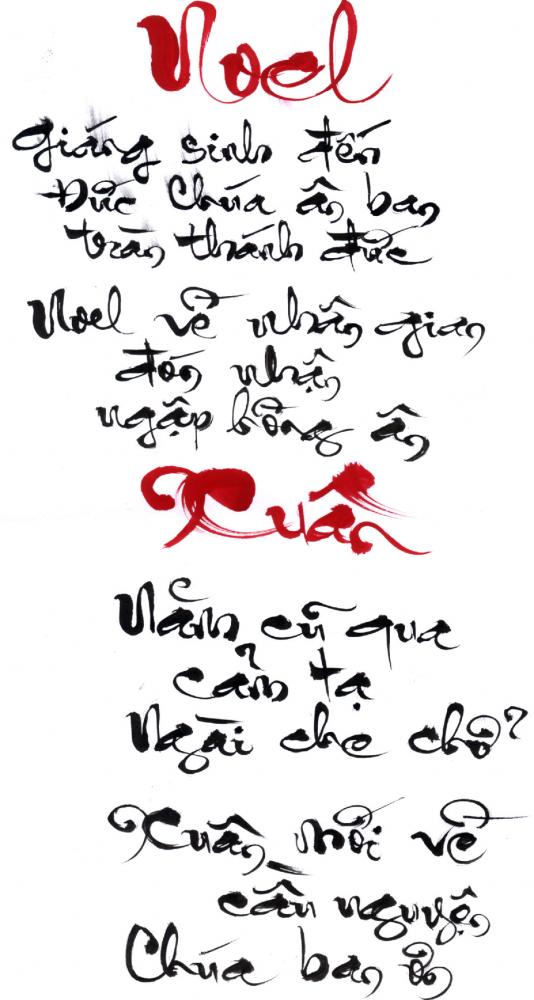 Noel
Giáng sinh đến
Đức Chúa ân ban
tràn thánh đức
Noel về nhân gian
đón nhận
ngập hồng ân
Xuân
Năm cũ qua
cảm tạ
Ngài che chở
Xuân mới về
cầu nguyện
Chúa ban ơn